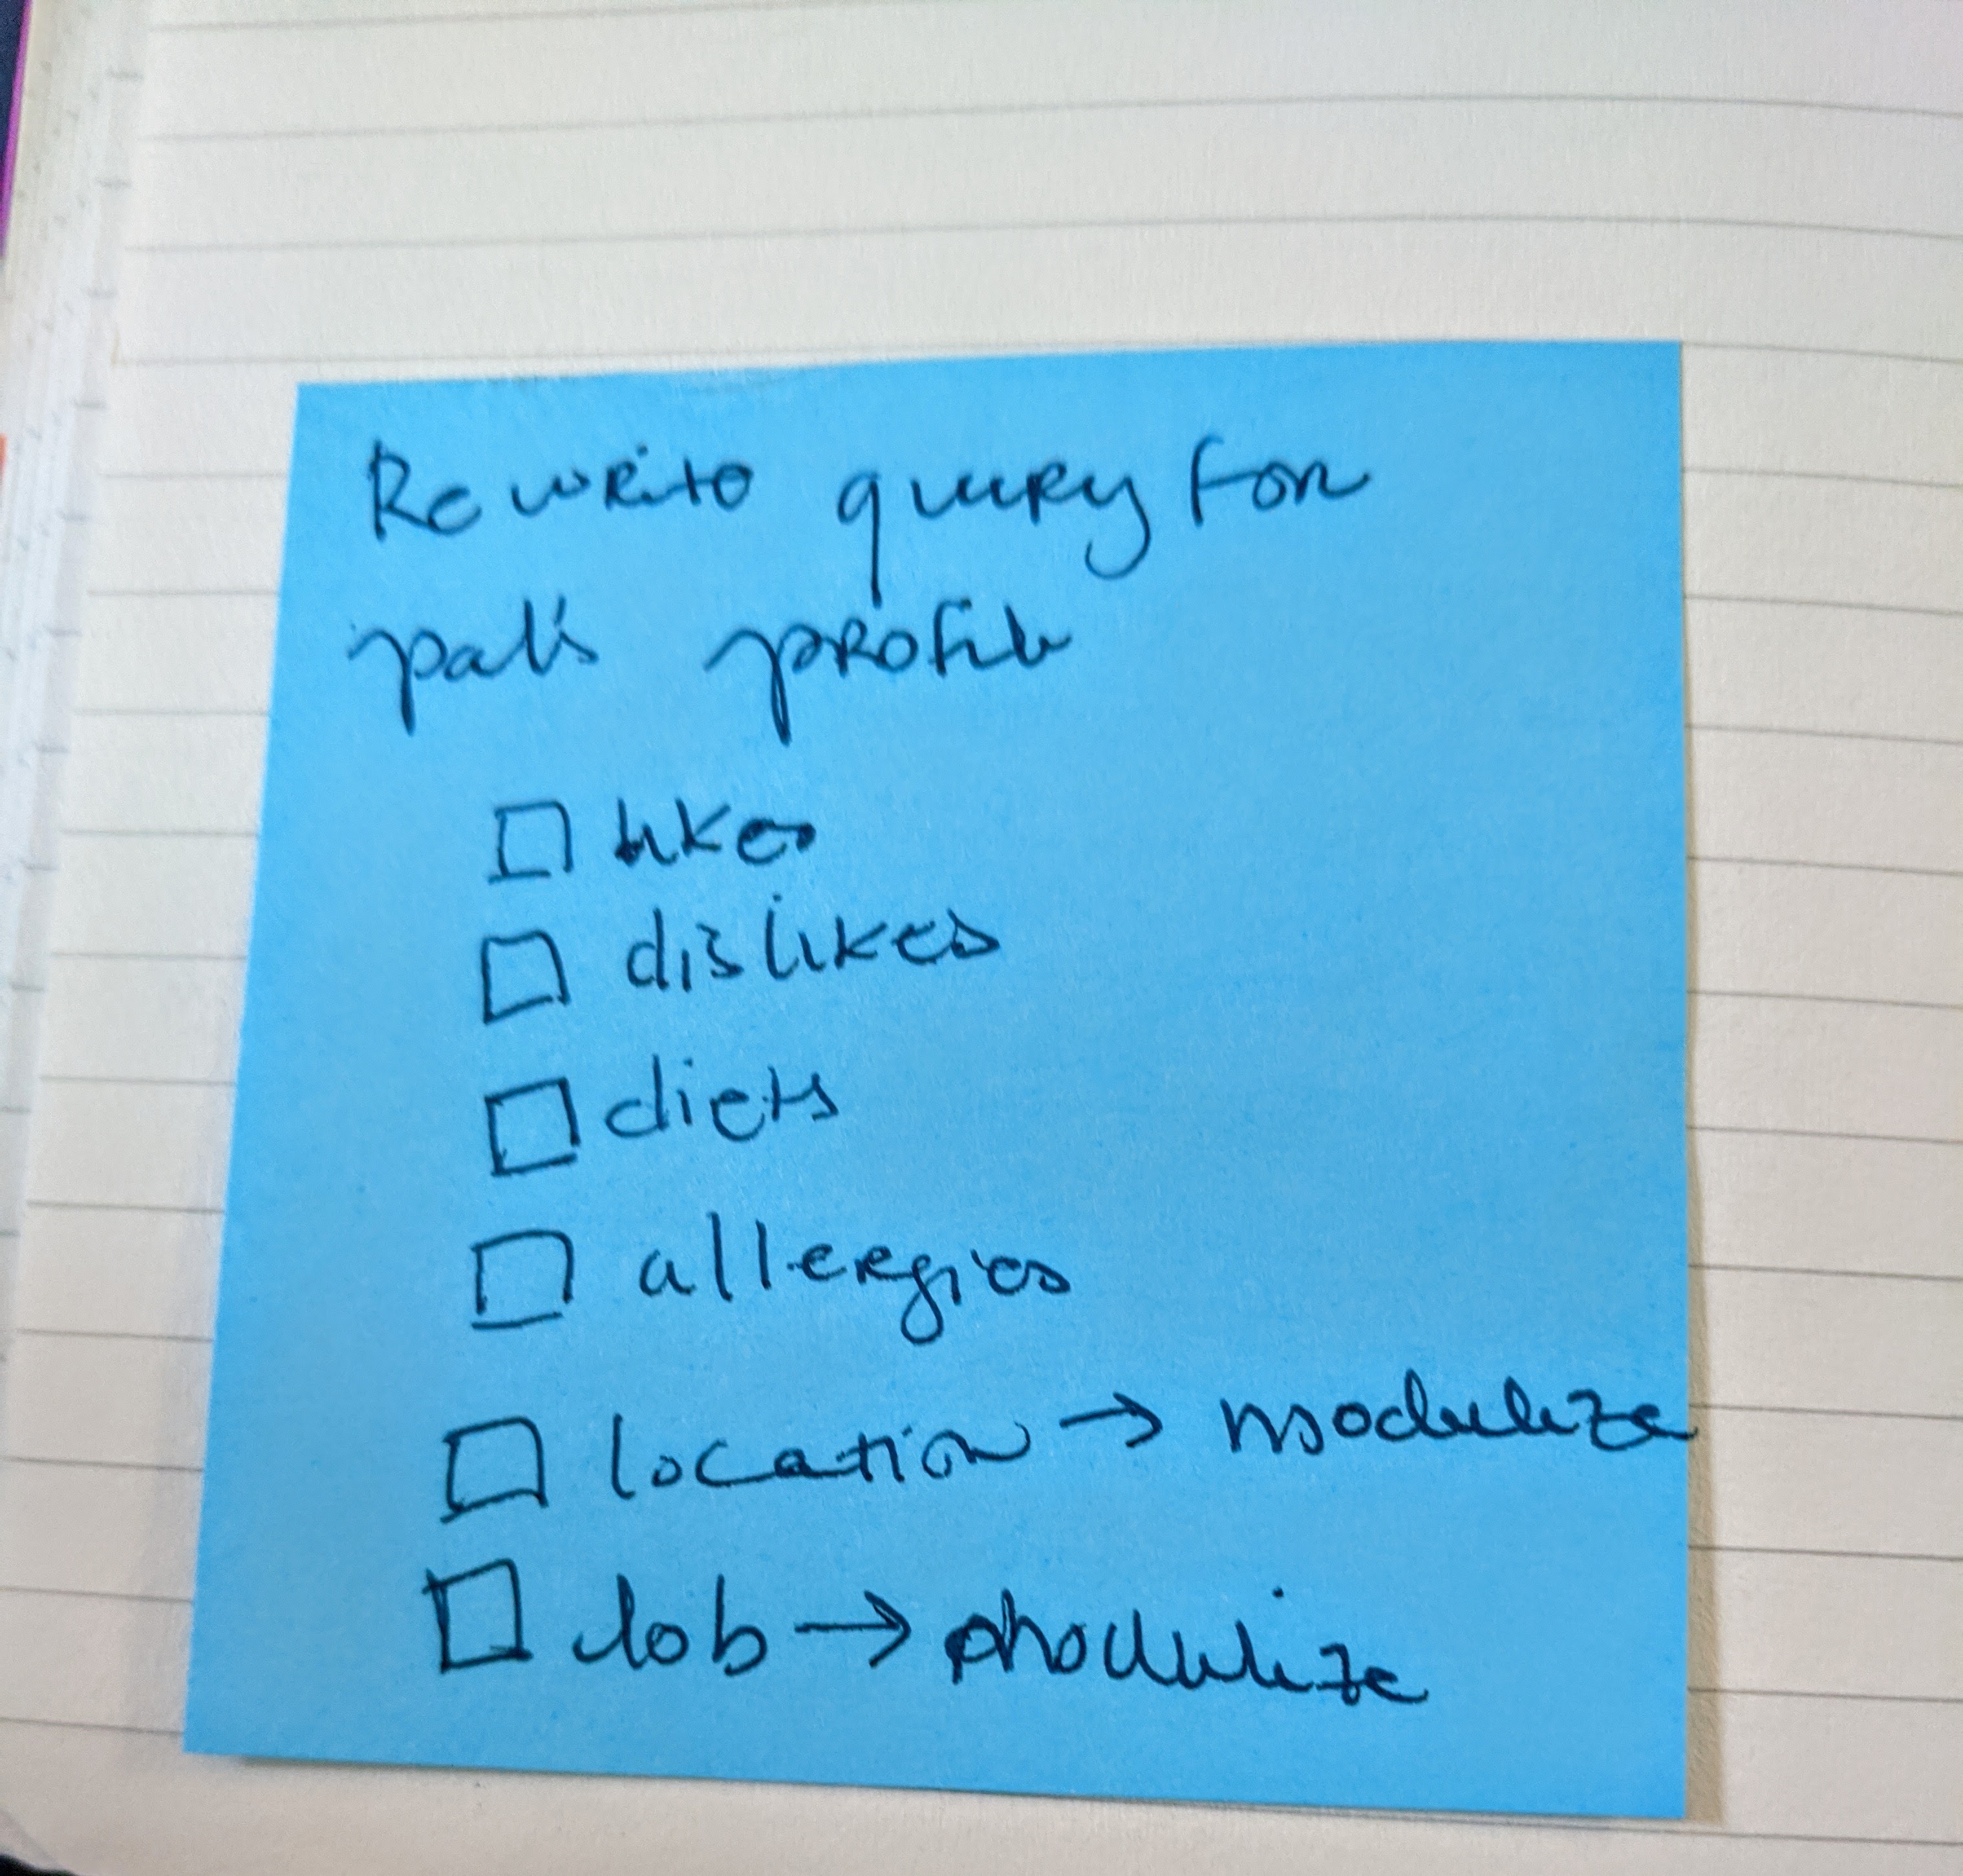 Rewrite query for
pal's profile
☐ likes
☐ dislikes
☐ diets
☐ allergies
☐ location → modulize
☐ dob → modulize